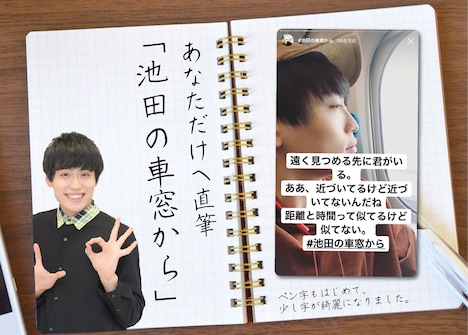 あなただけへ直筆
「池田の車窓から」
#池田の車窓から
遠く見つめる先に君がい
る。
ああ、近づいてるけど近づ
いてないんだね
距離と時間って似てるけど
似てない。
#池田の車窓から
ペン字もはじめて、
少し字が綺麗になりました。